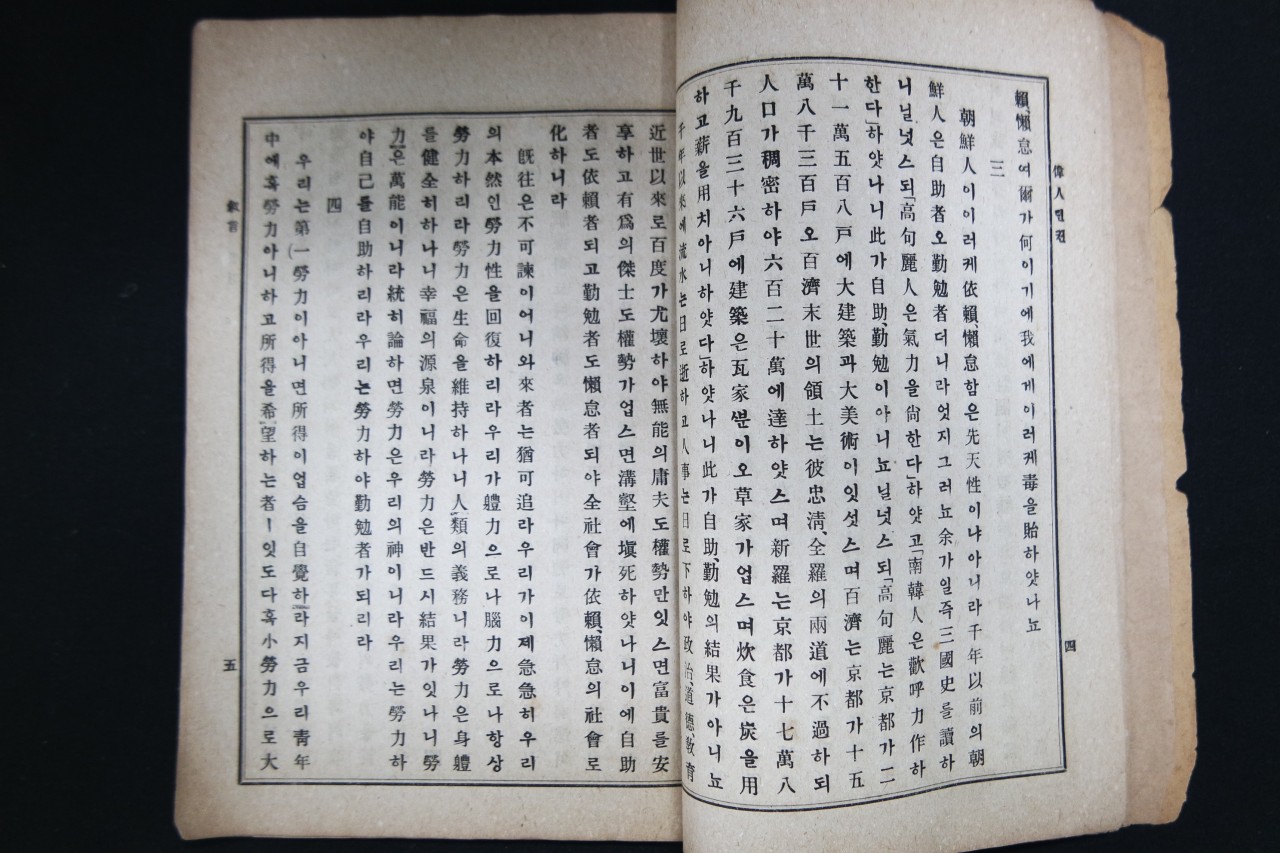 偉人면젼
四
賴、懶怠여爾가何이기에我에게이러케毒을貽하얏나뇨
三
朝鮮人이이러케依賴、懶怠함은先天性이냐아니라千年以前의朝
鮮人은自助者오勤勉者더니라엇지그러뇨余가일즉三國史를讀하
니닐넛스되「高句麗人은氣力을尙한다」하얏고「南韓人은歡呼力作하
한다」하얏나니此가自助、勤勉이아니뇨닐넛스되「高句麗는京都가二
十一萬五百八戶에大建築과大美術이잇섯스며百濟는京都가十五
萬八千三百戶오百濟末世의領土는彼忠淸、全羅의兩道에不過하되
人口가稠密하야六百二十萬에達하얏스며新羅는京都가十七萬八
千九百三十六戶에建築은瓦家뿐이오草家가업스며炊食은炭을用
하고薪을用치아니하얏다」하얏나니此가自助、勤勉의結果가아니뇨
千年以來에流水는日로逝하고人事는日로下하야政治、道德、敎育
近世以來로百度가尤壞하야無能의庸夫도權勢만잇스면富貴를安
享하고有爲의傑士도權勢가업스면溝壑에塡死하얏나니이에自助
者도依賴者되고勤勉者도懶怠者되야全社會가依賴、懶怠의社會로
化하니라
旣往은不可諫이어니와來者는猶可追라우리가이제急急히우리
의本然인勞力性을回復하리라우리가軆力으로나腦力으로나항상
勞力하리라勞力은生命을維持하나니人類의義務니라勞力은身軆
를健全히하나니幸福의源泉이니라勞力은반드시結果가잇나니「勞
力」은萬能이니라統히論하면勞力은우리의神이니라우리는勞力하
야自己를自助하리라우리는勞力하야勤勉者가되리라
四
우리는第一(勞力이아니면所得이업슴을自覺하)라지금우리靑年
中에혹勞力아니하고所得을希望하는者ㅣ잇도다혹小勞力으로大
叙言
五